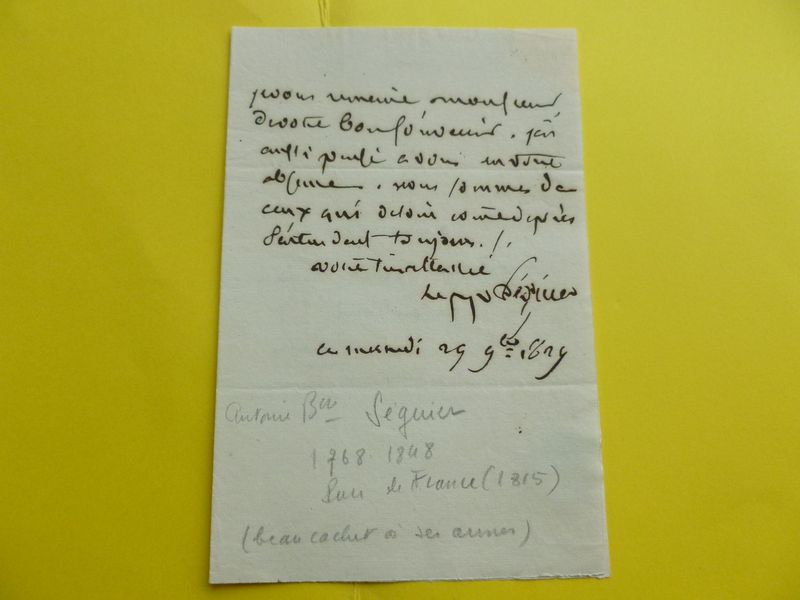 je vous remercie monsieur
de votre bon souvenir. j'ai
aussi pensé a vous en votre
absence. nous sommes de
ceux qui de loin comme de près
s'entendent toujours./.
votre très attaché
Séguier
ce mercredi 29 9bre 1829
Antoine Bon Séguier
1768-1848
Pair de France (1815)
(beau cachet à ses armes)